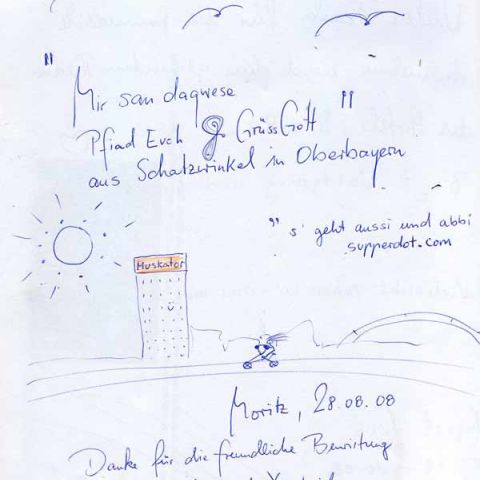 "Mir san dagwese
Pfiad Euch & Grüss Gott"
aus Schatzwinkel in Oberbayern
" s' geht aussi und abbi
supperdot.com
Muskator
Moritz, 28.08.08
Danke für die freundliche Bewirtung